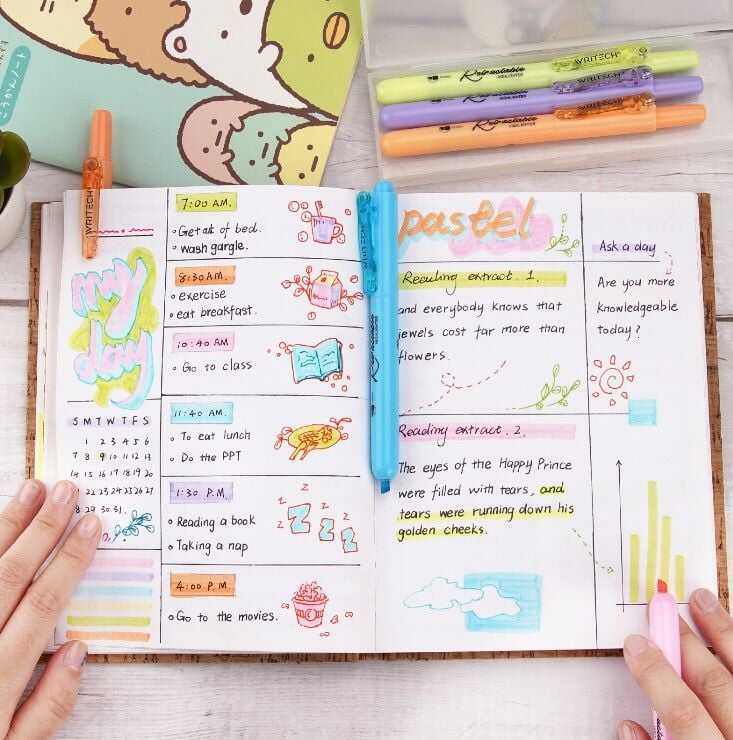 こうかんノート
WRITECH
Retractable
HIGHLIGHTER
WRITECH
Retractable
HIGHLIGHTER
WRITECH
Retractable
HIGHLIGHTER
WRITECH
my
day
S M T W T F S
1 2 3 4 5 6
7 8 9 10 11 12 13
14 15 16 17 18 19 20
1 22 23 24 25 26 27
8 29 30 31.
7:00 AM.
Get out of bed.
wash gargle.
8:30 AM.
exercise
eat breakfast.
10:40 AM
Go to class
11:40 AM.
To eat lunch
Do the PPT
1:30 P.M.
Reading a book
Taking a nap
z z z
Z Z Z
4:00 P.M.
Go to the movies.
WRITECH
Retractable
pastel
Reading extract. 1.
and everybody knows that
jewels cost far more than
flowers.
Reading extract. 2.
The eyes of the Happy Prince
were filled with tears, and
tears were running down his
golden cheeks.
Ask a day
Are you more
knowledgeable
today?